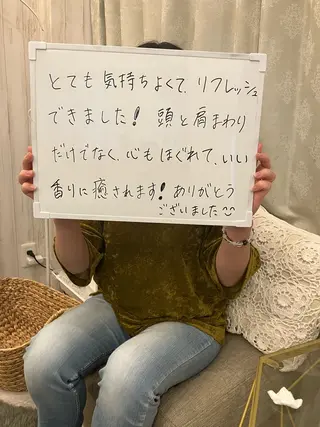 とても気持ちよくて、リフレッシュ
できました！頭と肩まわり
だけでなく、心もほぐれて、いい
香りに癒されます！ありがとう
ございました